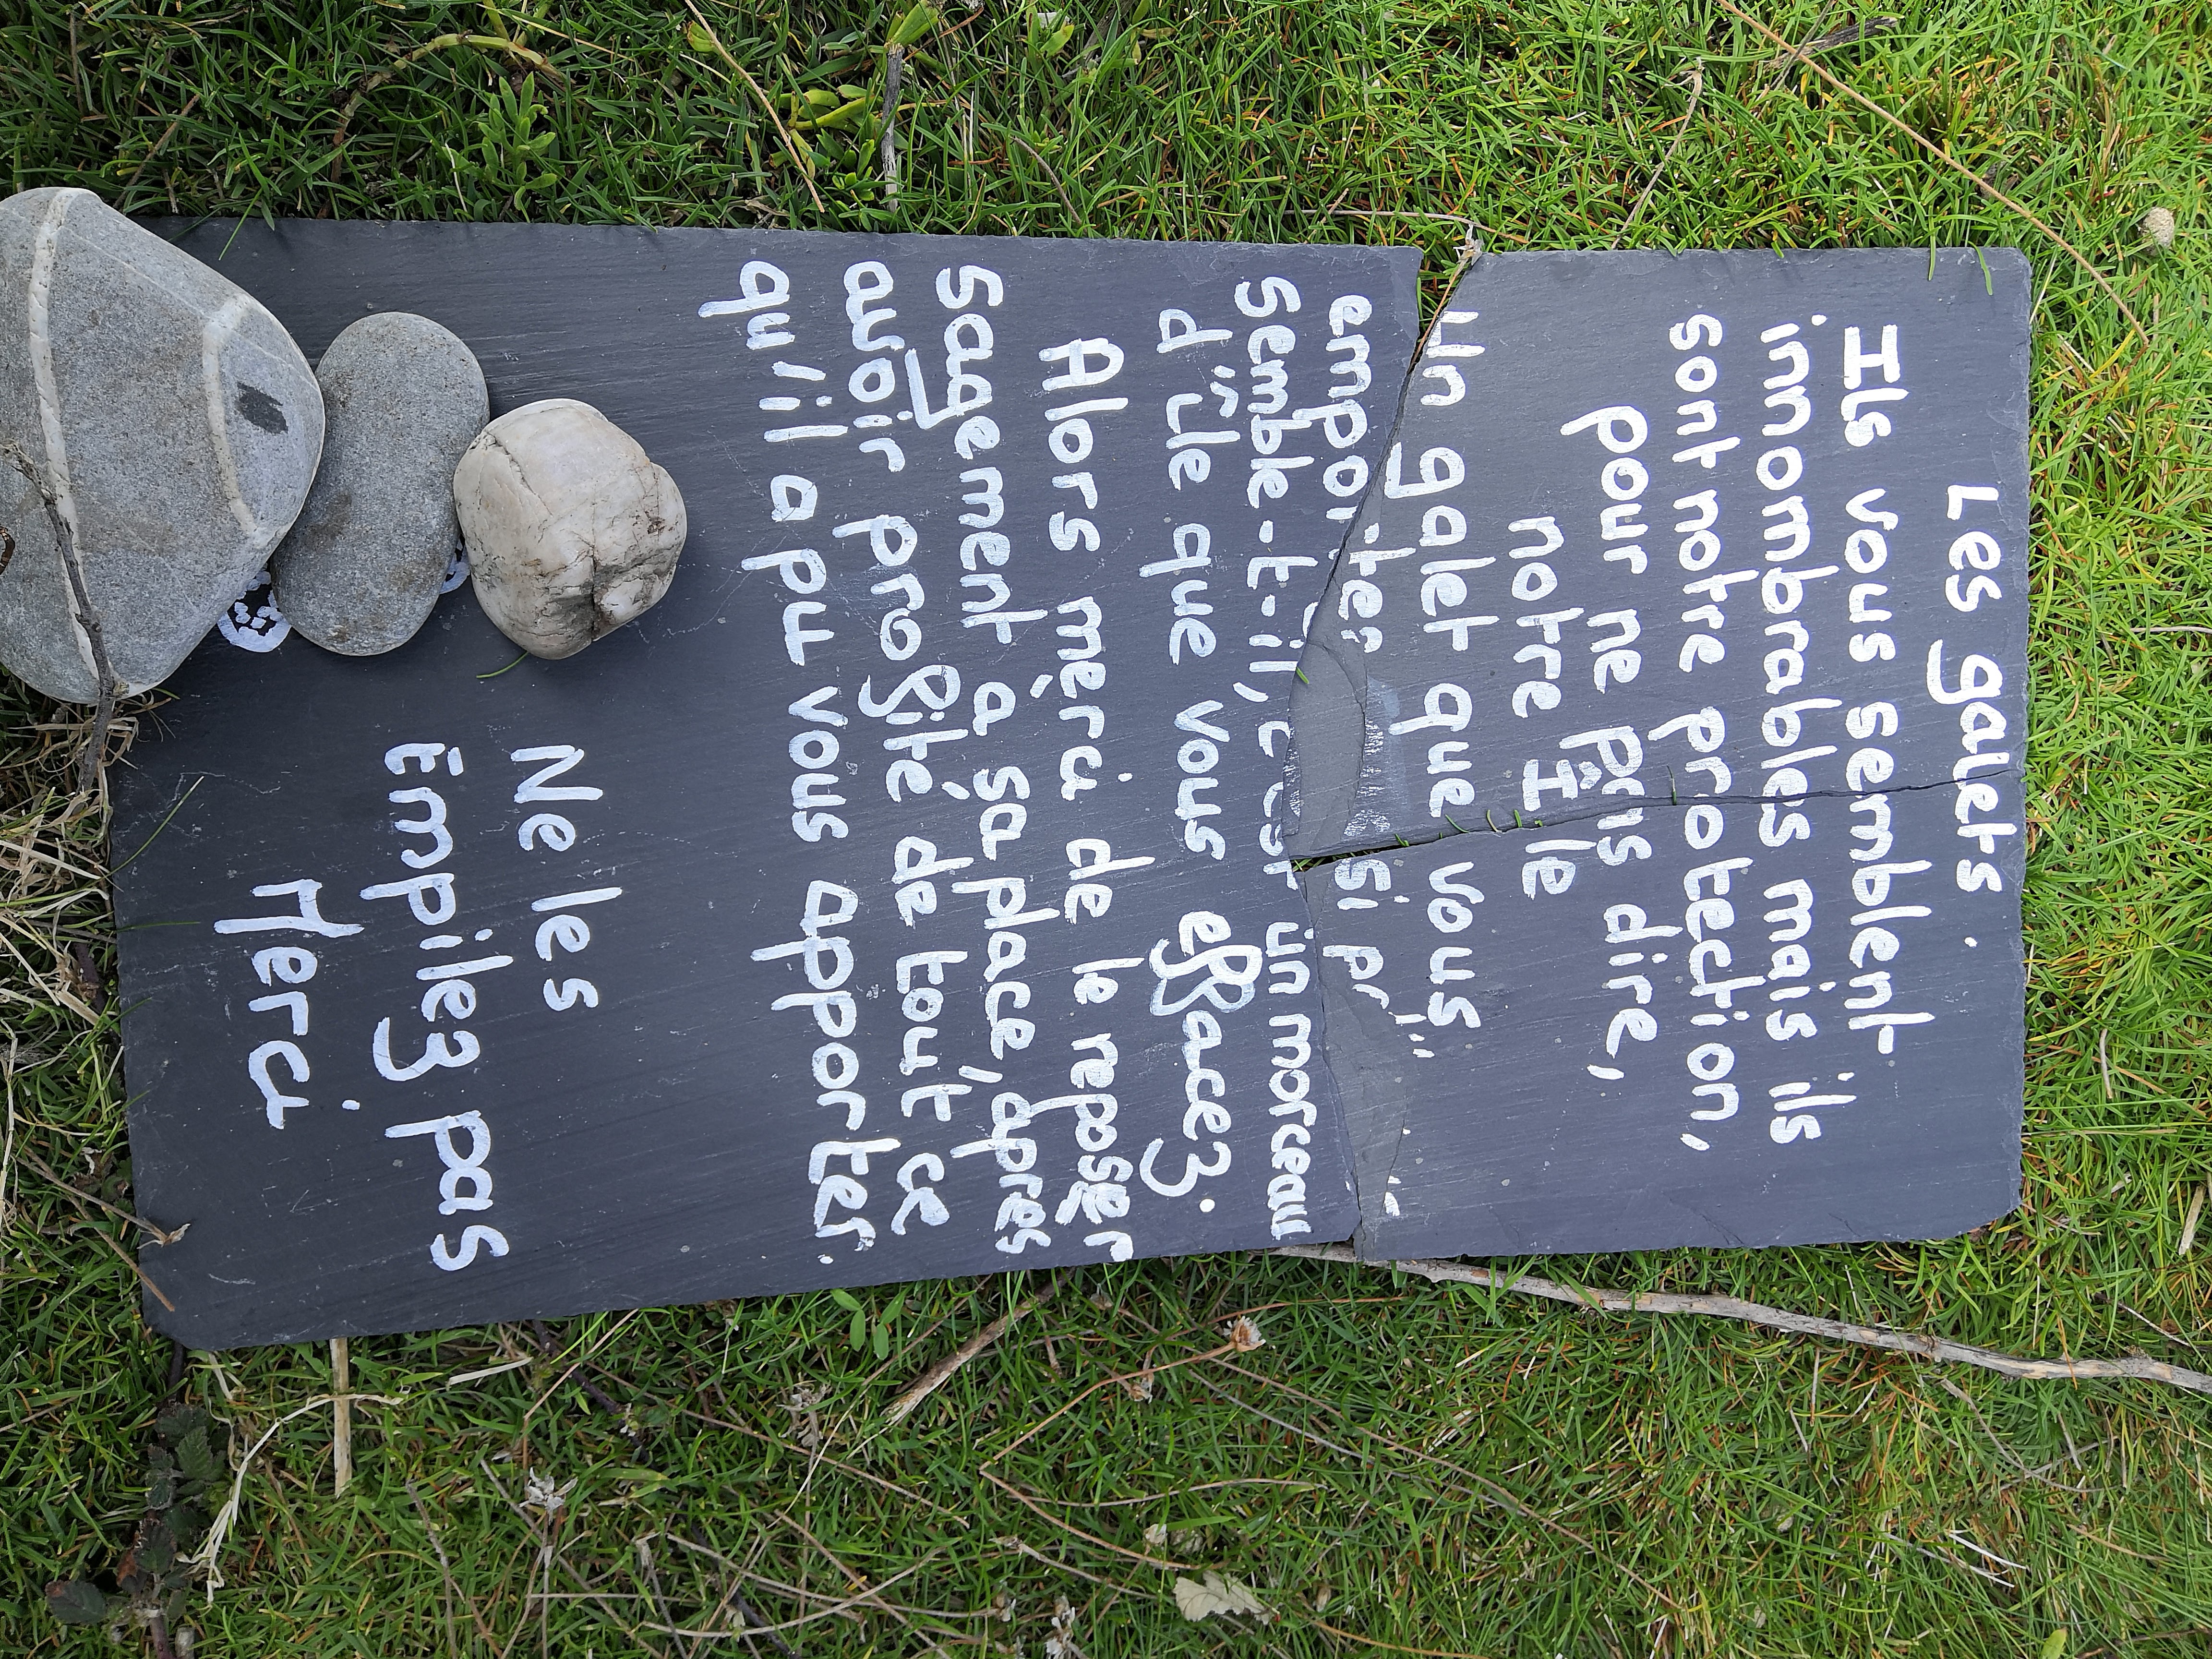 Les galets.
Ils vous semblent
innombrables mais ils
sont notre protection,
pour ne pas dire,
notre Île
un galet que vous
emportez si
Semble-t-il, c'est un morceau
d'île que vous effacez.
Alors merci de le reposer
sagement a sa place, apres
avoir profité de tout ce
qu'il a pu vous apporter.
Ne les
Empilez pas
Merci